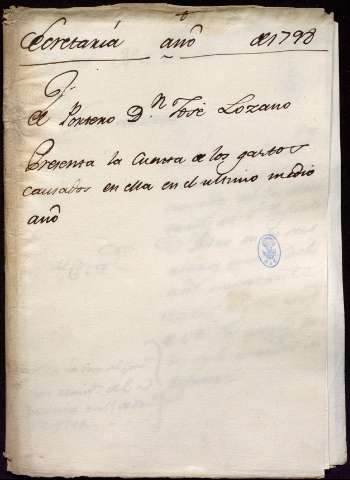 Secretaría año de 1798
El Portero D.n José Lozano
Presenta la Cuenta de los gastos
causados en ella en el ultimo medio
año